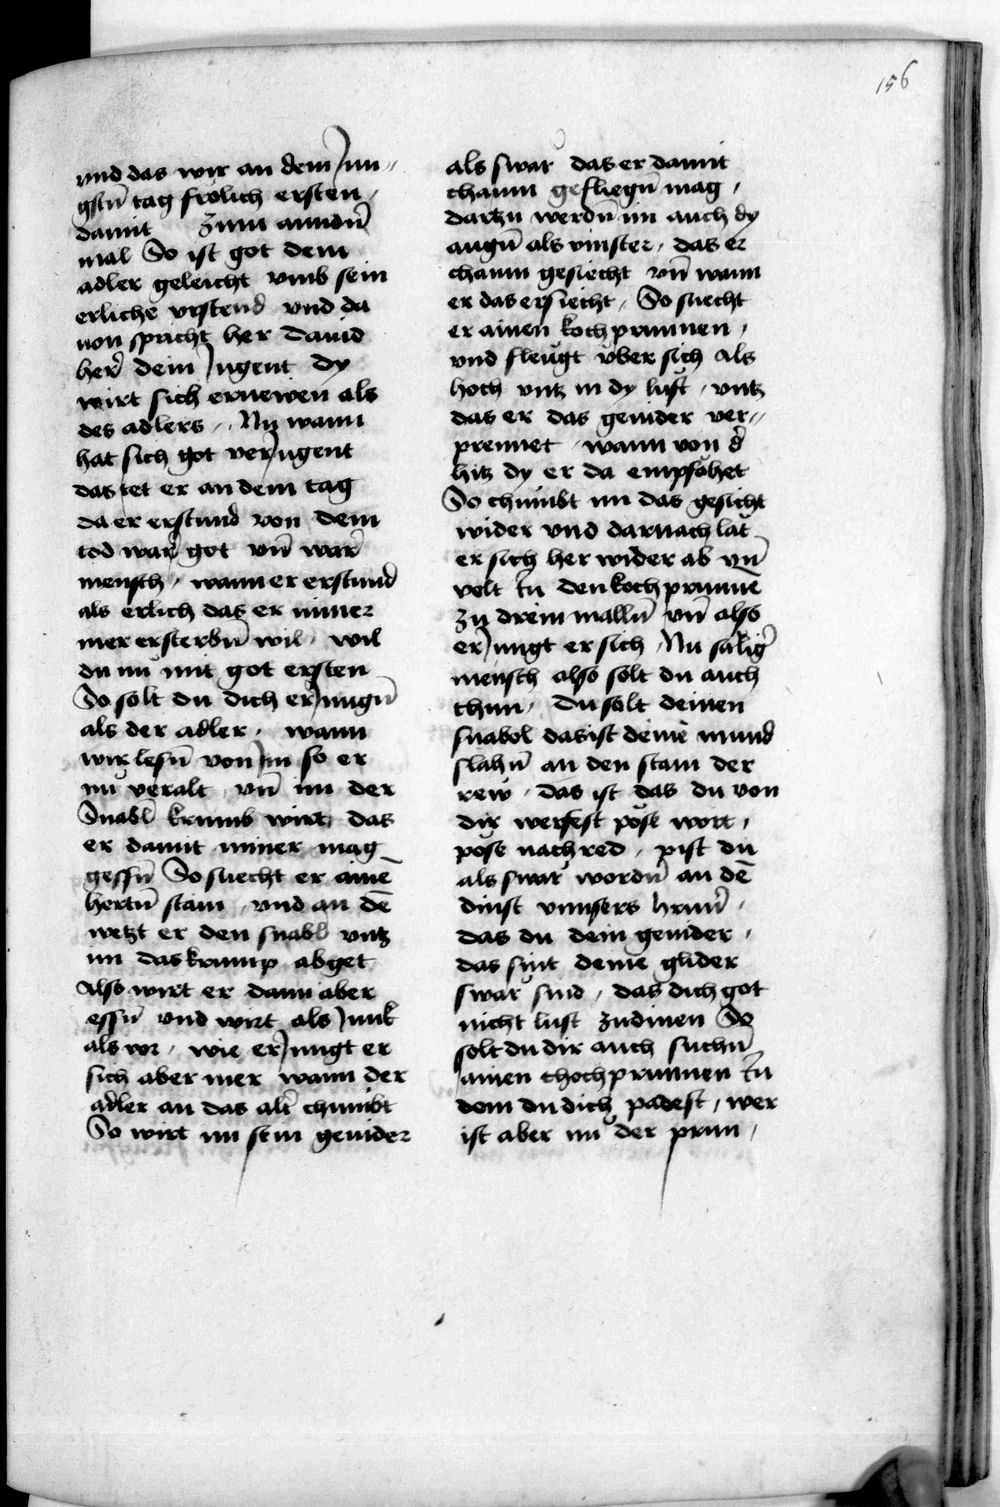 156
vnd das wir an dem Jun⸗
gstn̄ tag frölich ersten /
damit zum anndn̄
mal So ist got dem
adler geleicht vmb sein
erliche vrstend vnd da
uon spricht her dauid
her̄ dein Jugent dy
wirt sich ernewen als
des adlers / Nu wann
hat sich got verJugent
das tet er an dem tag
da er erstund von dem
tod war̄ got vn̄ war̄
mensch / wann er erstund
als erlich das er nimer
mer ersterbn̄ wil / wil
du nu mit got ersten
So solt du dich erJungn̄
als der adler / wann
wir lesn̄ von Im so er
nu veralt / vn̄ im der
Snabl̄ krumb wirt das
er damit nimer mag
gessn̄ So suecht er aine̅
hertn̄ stain / vnd an de̅
wetzt er den snabl vntz
im das krump abget
Also wirt er dann aber
essn̄ vnd wirt als Junk̄
als vor / wie erJungt er
sich aber mer wann der
adler an das alt̄ chumbt
So wirt im sein geuider
als swar das er damit
chaum gefliegn̄ mag /
dartzu werdn̄ im auch dy
augn̄ als vinster / das er
chaum gesiecht vn̄ wann
er das ersiecht / So suecht
er ainen kochprunnen /
vnd fleugt vber sich als
hoch vntz in dy luft / vntz
das er das geuider ver⸗
prennet / wann von d̄
hitz dy er da empfahet
So chumbt im das gesicht
wider vnd darnach lat
er sich her wider ab vn̄
velt In den kochprunne̅
zu drein malln̄ vn̄ also
erJungt er sich / Nu saliḡ
mensch also solt du auch
thun / Du solt deinen
snabol das ist deine̅ mund
slahn̄ an den stain der
rew / das ist das du von
dir werfest pose wort /
pose nachred / pist du
als swar wordn̄ an de̅
dinst vnnsers hrnn̄ /
das du dein geuider /
das sint deine glider
swar sind / das dich got
nicht lust zudinen So
solt du dir auch suchn̄
ainen chochprunnen In
dem du dich padest / wer
ist aber nu der prun /